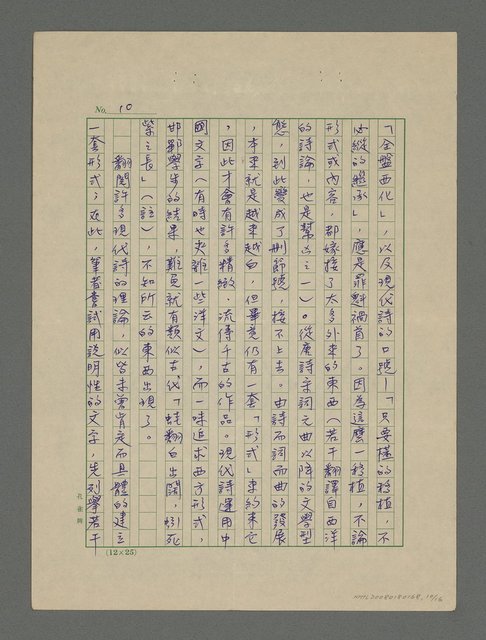 No. 10
「全盤西化」,以及現代詩的口號—「只要橫的移植,不
必縱的繼承」,應是罪魁禍首了。因為這麼一移植,不論
形式或內容,都嫁接了太多外來的東西(若干翻譯自西洋
的詩論,也是幫凶之一)。從唐詩宋詞元曲以降的文學型
態,到此變成了刪節號,接不上去。由詩而詞而曲的發展
,本來就是越來越白,但畢竟仍有一套「形式」來約束它
,因此才會有許多精緻、流傳千古的作品。現代詩運用中
國文字(有時也夾雜一些洋文),而一味追求西方形式,
邯鄲學步的結果,難免就有類似古代「蛙翻白出闊,蚓死
紫之長」(註),不知所云的東西出現了。
翻閱許多現代詩的理論,似皆未曾肯定而具體的建立
一套形式;在此,筆者嘗試用說明性的文字,先列舉若干
孔雀牌
(12×25)
NMTL20080180168, 10/16